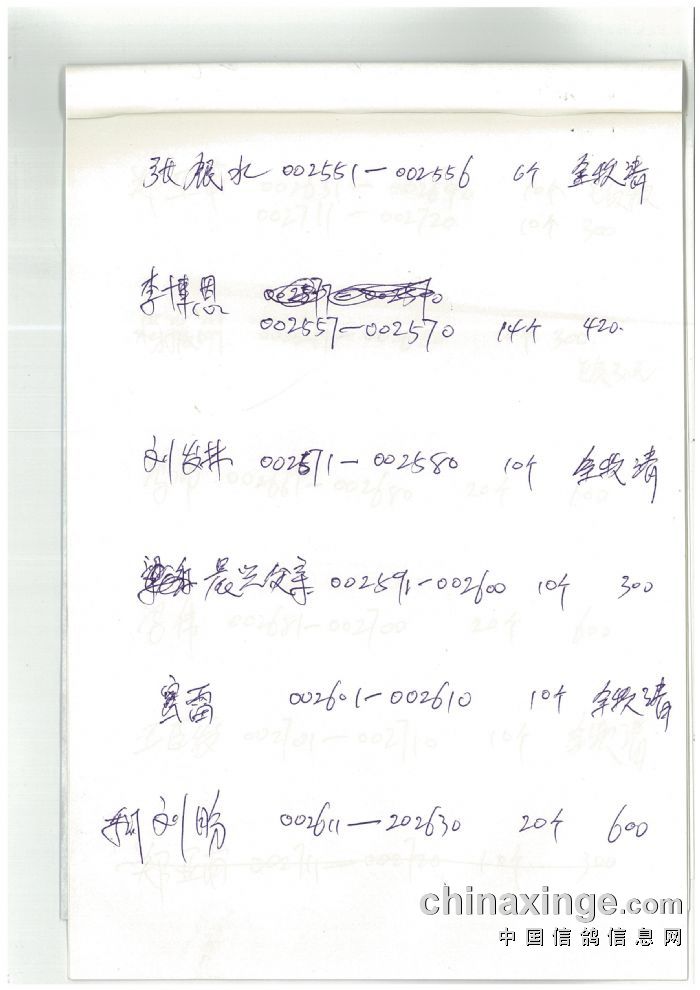 张根水 002551-002556 6个 全款清
李博恩
002557-002570 14个 420.
刘发林 002571-002580 10个 全款清
晨兴父亲 002591-002600 10个 300
雷 002601-002610 10个 全款清
刘鹏 002611-202630 20个 600
chinaxinge.com
中国信鸽信息网